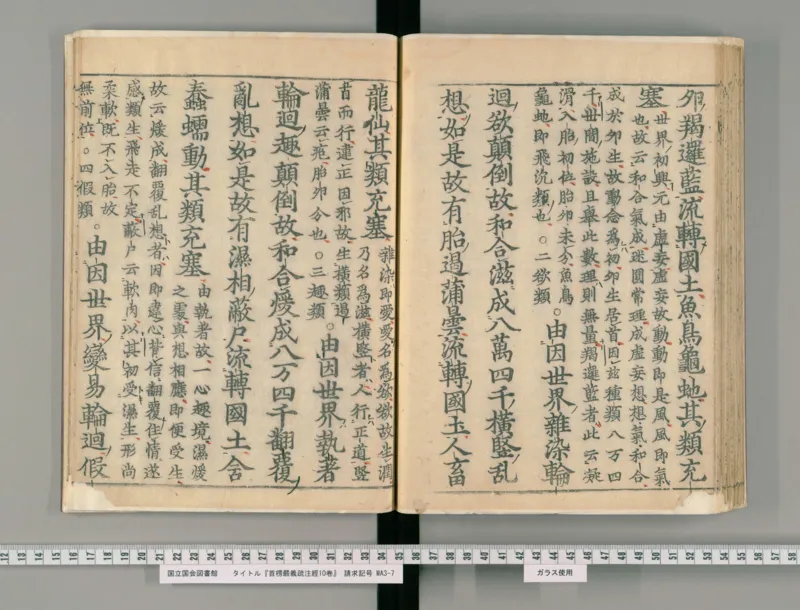 卵羯邏藍流轉國土魚鳥龜虵其類充
塞
世界初興元由虚妄虚妄故動動即是風風即氣
也故云和合氣成迷圓常理成虛妄想想氣和合
成於卵生故動念為初卵生居首因玆種類八万四
千世間施設且舉此數理則無量羯邏藍者此云凝
滑入胎初位胎卵未分魚鳥
龜虵即飛沉類也。二欲類
。由因世界雜染輪
迴欲顛倒故和合滋成八萬四千橫竪乱
想如是故有胎遏蒲曇流轉國土人畜
龍仙其類充塞
雜染即愛愛名為欲欲故生潤
乃名為滋橫竪者人行正道竪
首而行違正因邪故生橫類遏
蒲曇云疱胎卵分也。三趣類
。由因世界執著
輪迴趣顛倒故和合煖成八万四千翻覆
亂想如是故有濕相蔽尸流轉國土含
蠢蠕動其類充塞
由執著故一心趣境濕煖
之處與想相應即便受生
故云煖成翻覆乱想者因即違心背信翻覆住情遂
感類生飛走不定蔽尸云軟肉以其初受濕生形尚
柔軟既不入胎故
無前位。四假類
。由因世界變易輪迴假
12 13 14 15 16 17 18 19 20 21 22 23 24 25 26 27 28 29 30 31 32 33 34 35 36 37 38 39 40 41 42 43 44 45 46 47 48 49 50 51 52 53 54 55 56 57 58
国立国会図書館 タイトル『首楞嚴義疏注經10巻』 請求記号 WA3-7
ガラス使用